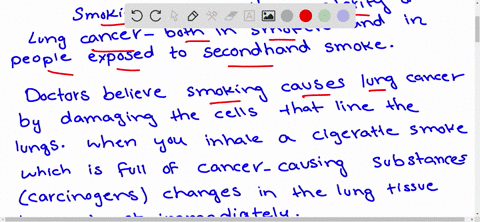 Lung cancer- both in smokers and in
people exposed to secondhand smoke.
Doctors believe smoking causes lung cancer
by damaging the cells that line the
lungs. when you inhale a cigeratte smoke
which is full of cancer-causing substances
(carcinogens) changes in the lung tissue
immediately.